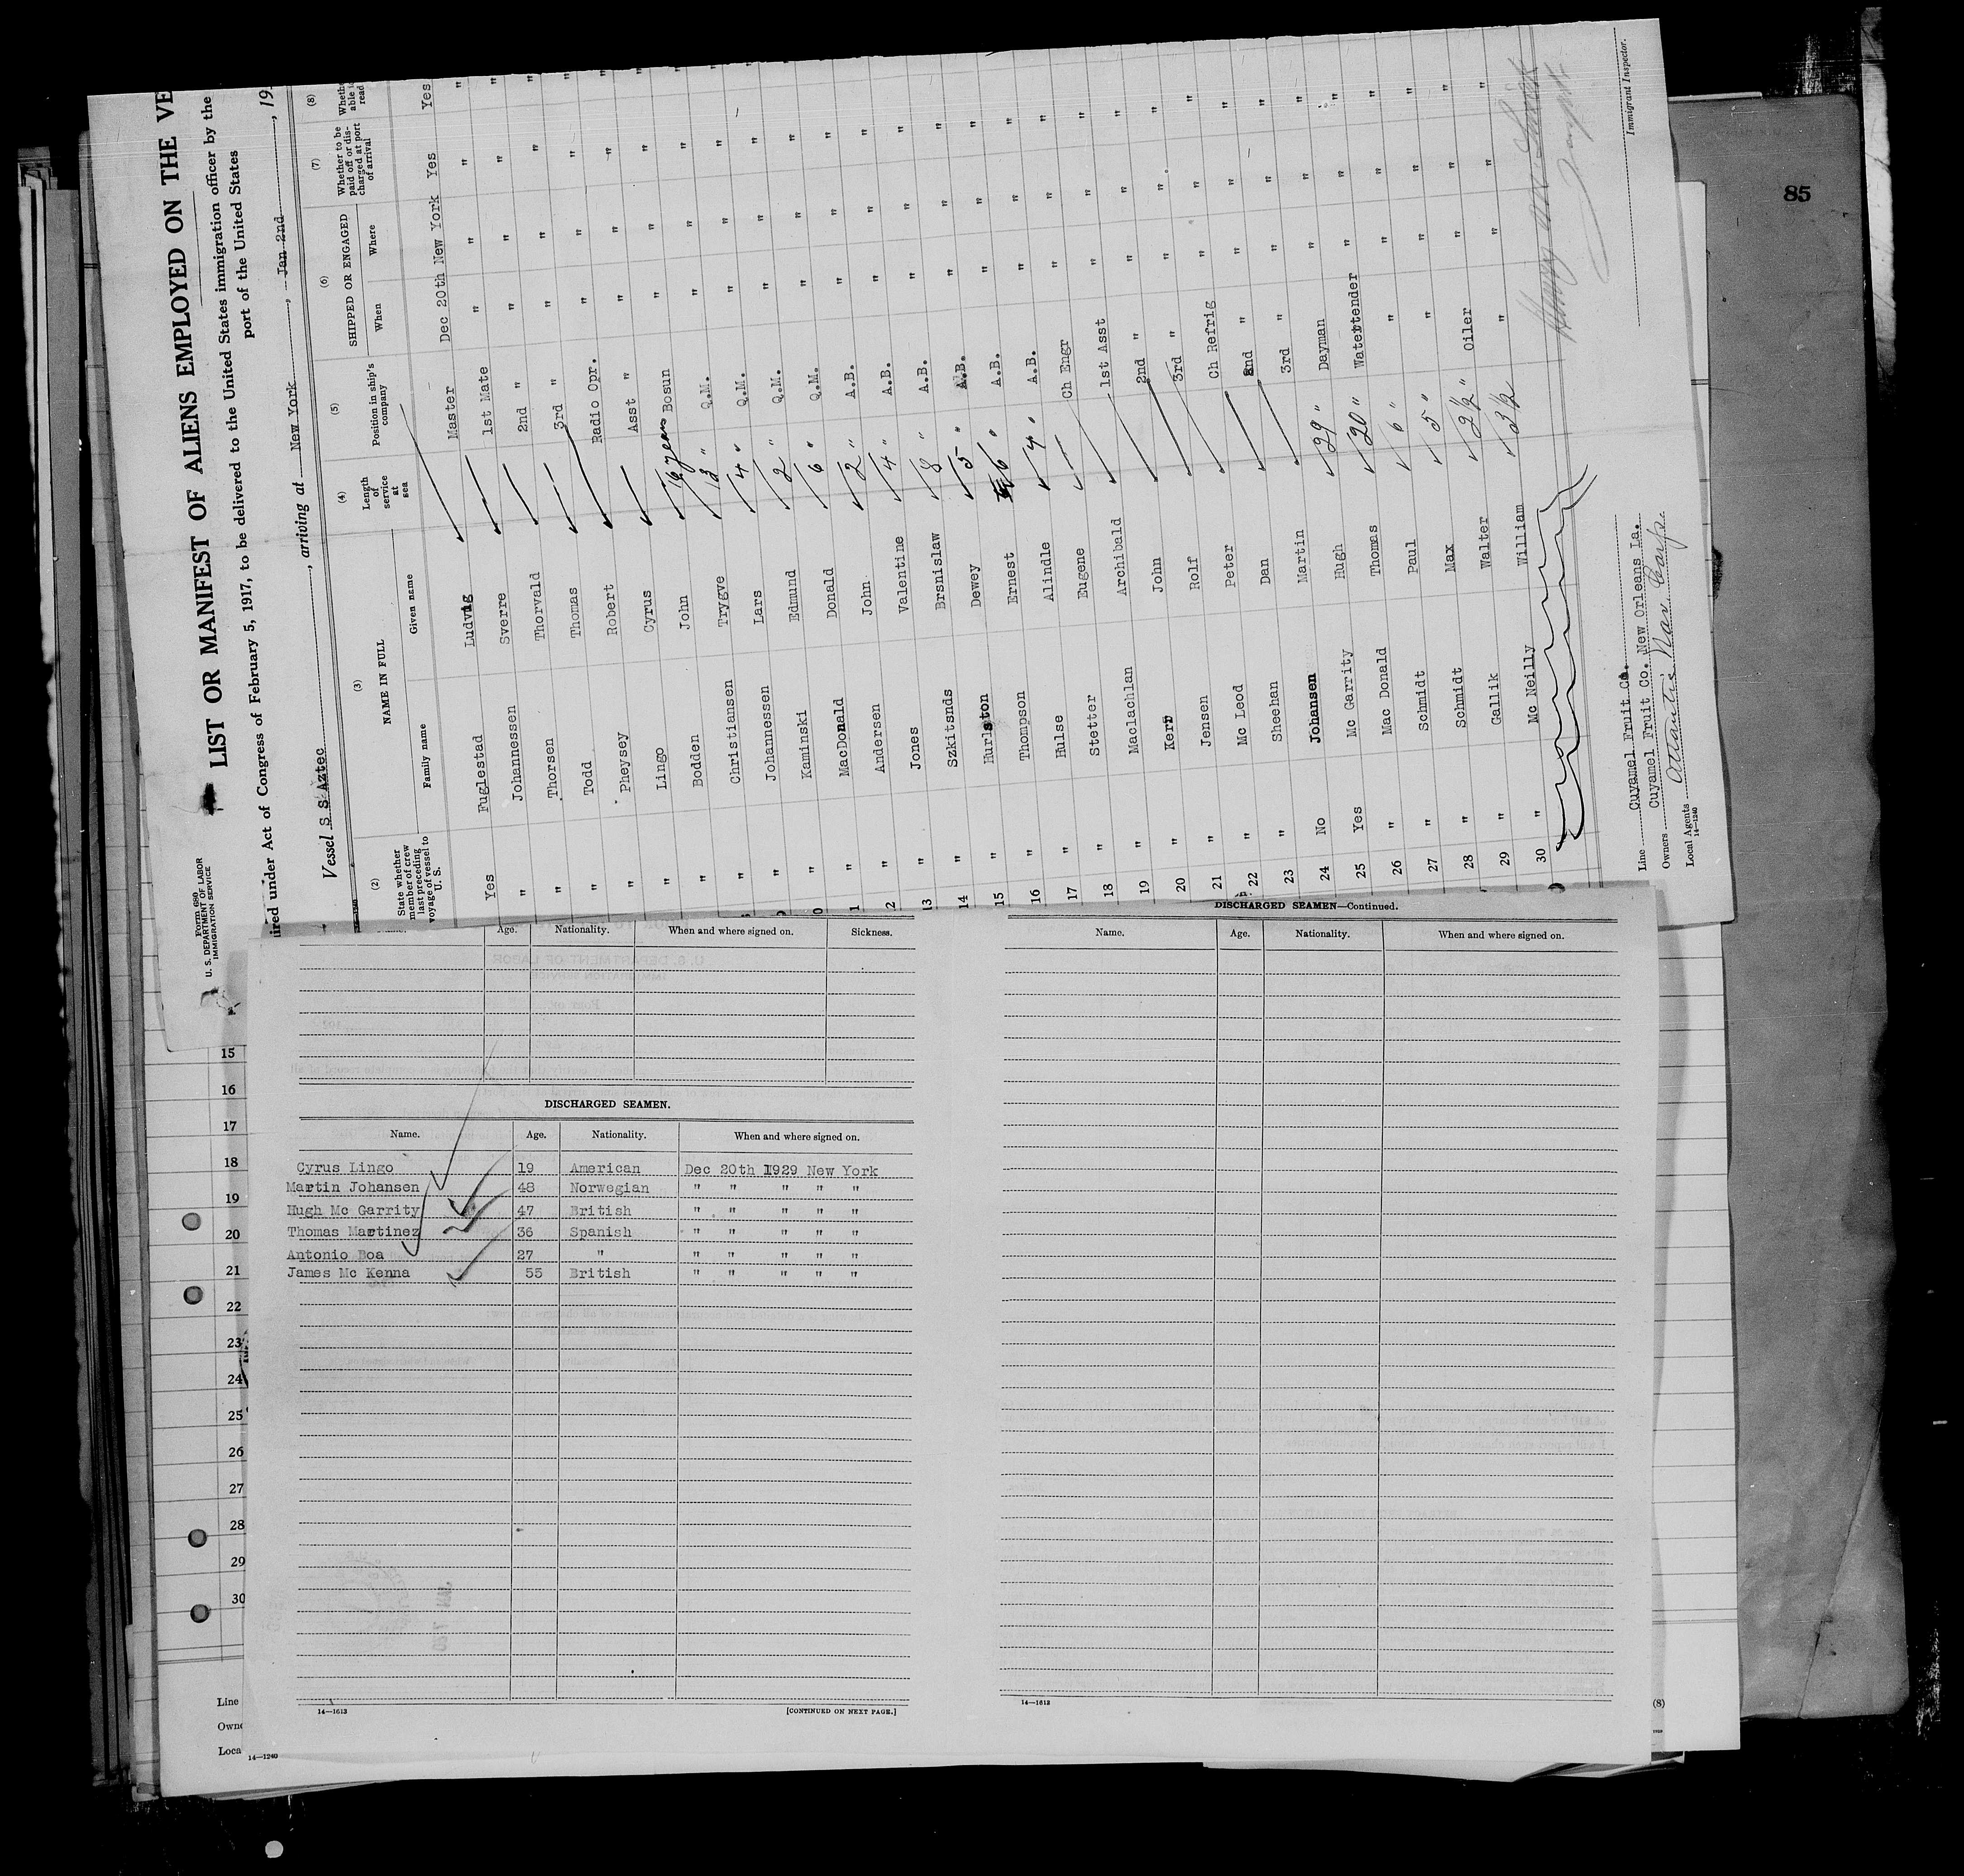 85
Form 680
U. S. DEPARTMENT OF LABOR
IMMIGRATION SERVICE
LIST OR MANIFEST OF ALIENS EMPLOYED ON THE VE
ired under Act of Congress of February 5, 1917, to be delivered to the United States immigration officer by the
port of the United States
Vessel S S Aztec, arriving at New York, Jan 2nd, 19
(2) (3) (4) (5) (6) (7) (8)
State whether member of crew last preceding voyage of vessel to U. S.
NAME IN FULL
Family name Given name
Length of service at sea
Position in ship's company
SHIPPED OR ENGAGED
When Where
Whether to be paid off or discharged at port of arrival
Yes Fuglestad Ludvig Master Dec 20th New York Yes Yes
" Johannessen Sverre 1st Mate " " " "
" Thorsen Thorvald 2nd " " " " "
" Todd Thomas 3rd " " " " "
" Pheysey Robert Radio Opr. " " " "
" Lingo Cyrus Asst " " " " "
" Bodden John 16 years Bosun " " " "
" Christiansen Trygve 13 " Q.M. " " " "
" Johannessen Lars 4 " Q.M. " " " "
" Kaminski Edmund 2 " Q.M. " " " "
" MacDonald Donald 6 " Q.M. " " " "
1 " Andersen John 2 " A.B. " " " "
2 " Jones Valentine 4 " A.B. " " " "
13 " Szkitsnds Brsnislaw 8 " A.B. " " " "
14 " Hurlston Dewey 5 " A.B. " " " "
15 " Thompson Ernest 6 " A.B. " " " "
16 " Hulse Alindle 4 " A.B. " " " "
17 " Stetter Eugene Ch Engr " " " "
18 " Maclachlan Archibald 1st Asst " " " "
19 " Kerr John 2nd " " " " "
20 " Jensen Rolf 3rd " " " " "
21 " Mc Leod Peter Ch Refrig " " " "
22 " Sheehan Dan 2nd " " " " "
23 " Johansen Martin 3rd " " " " "
24 No Mc Garrity Hugh 29 " Dayman " " " "
25 Yes Mac Donald Thomas 20 " Watertender " " " "
26 " Schmidt Paul 6 " " " " " "
27 " Schmidt Max 5 " " " " " "
28 " Gallik Walter 2½ " Oiler " " " "
29 " Mc Neilly William 3½ " " " " "
30 "
Immigrant Inspector.
Line Cuyamel Fruit Co.
Owners Cuyamel Fruit Co. New Orleans La.
Local Agents Atlantic Nav. Corp.
14—1240
Age. Nationality. When and where signed on. Sickness.
DISCHARGED SEAMEN.
Name. Age. Nationality. When and where signed on.
Cyrus Lingo 19 American Dec 20th 1929 New York
Martin Johansen 48 Norwegian " " " " "
Hugh Mc Garrity 47 British " " " " "
Thomas Martinez 36 Spanish " " " " "
Antonio Boa 27 " " " " " "
James Mc Kenna 55 British " " " " "
14—1613
[CONTINUED ON NEXT PAGE.]
DISCHARGED SEAMEN—Continued.
Name. Age. Nationality. When and where signed on.
14—1613
15
16
17
18
19
20
21
22
23
24
25
26
27
28
29
30
Line
Owne
Loca
14—1240
(8)